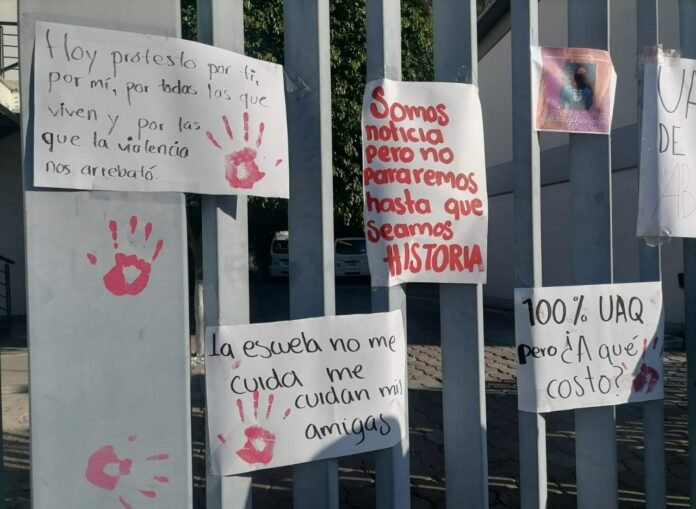 Hoy protesto por ti,
por mí, por todas las que
viven y por las
que la violencia
nos arrebató.
Somos
noticia
pero no
pararemos
hasta que
seamos
HISTORIA
La escuela no me
cuida me
cuidan mis
amigas
100% UAQ
pero ¿A qué
costo?
DE